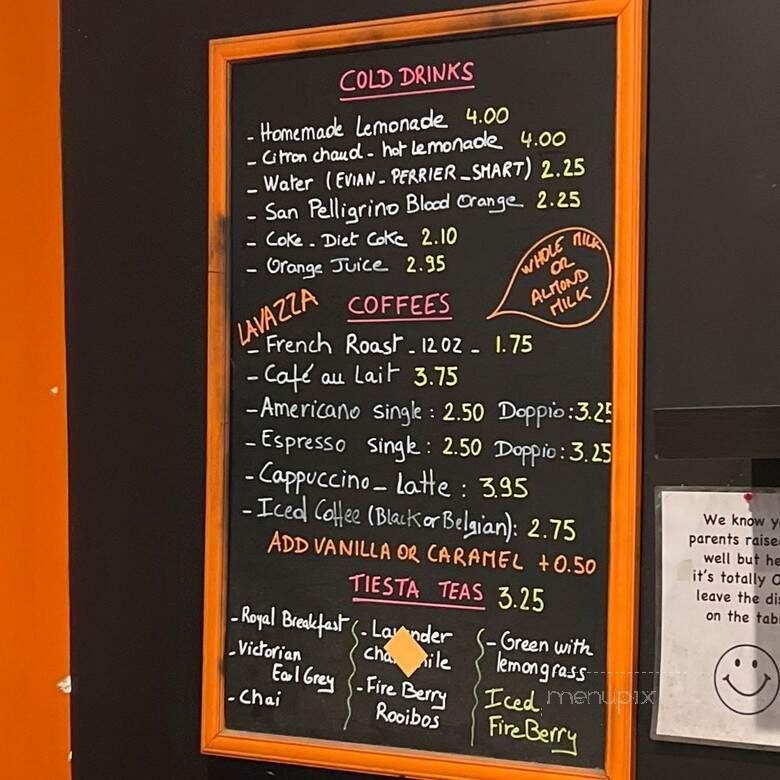 COLD DRINKS
- Homemade Lemonade 4.00
- Citron chaud - hot lemonade 4.00
- Water (EVIAN - PERRIER - SMART) 2.25
- San Pelligrino Blood Orange 2.25
- Coke - Diet Coke 2.10
- Orange Juice 2.95
WHOLE MILK
OR
ALMOND
MILK
LAVAZZA
COFFEES
- French Roast - 12 OZ - 1.75
- Café au Lait 3.75
- Americano single : 2.50 Doppio : 3.25
- Espresso single : 2.50 Doppio : 3.25
- Cappuccino - Latte : 3.95
- Iced Coffee (Black or Belgian): 2.75
ADD VANILLA OR CARAMEL +0.50
TIESTA TEAS 3.25
- Royal Breakfast
- Victorian
Earl Grey
- Chai
- Lavender
chamomile
- Fire Berry
Rooibos
- Green with
lemongrass
Iced
Fire Berry
We know y
parents raise
well but he
it's totally O
leave the di
on the tab
menupix